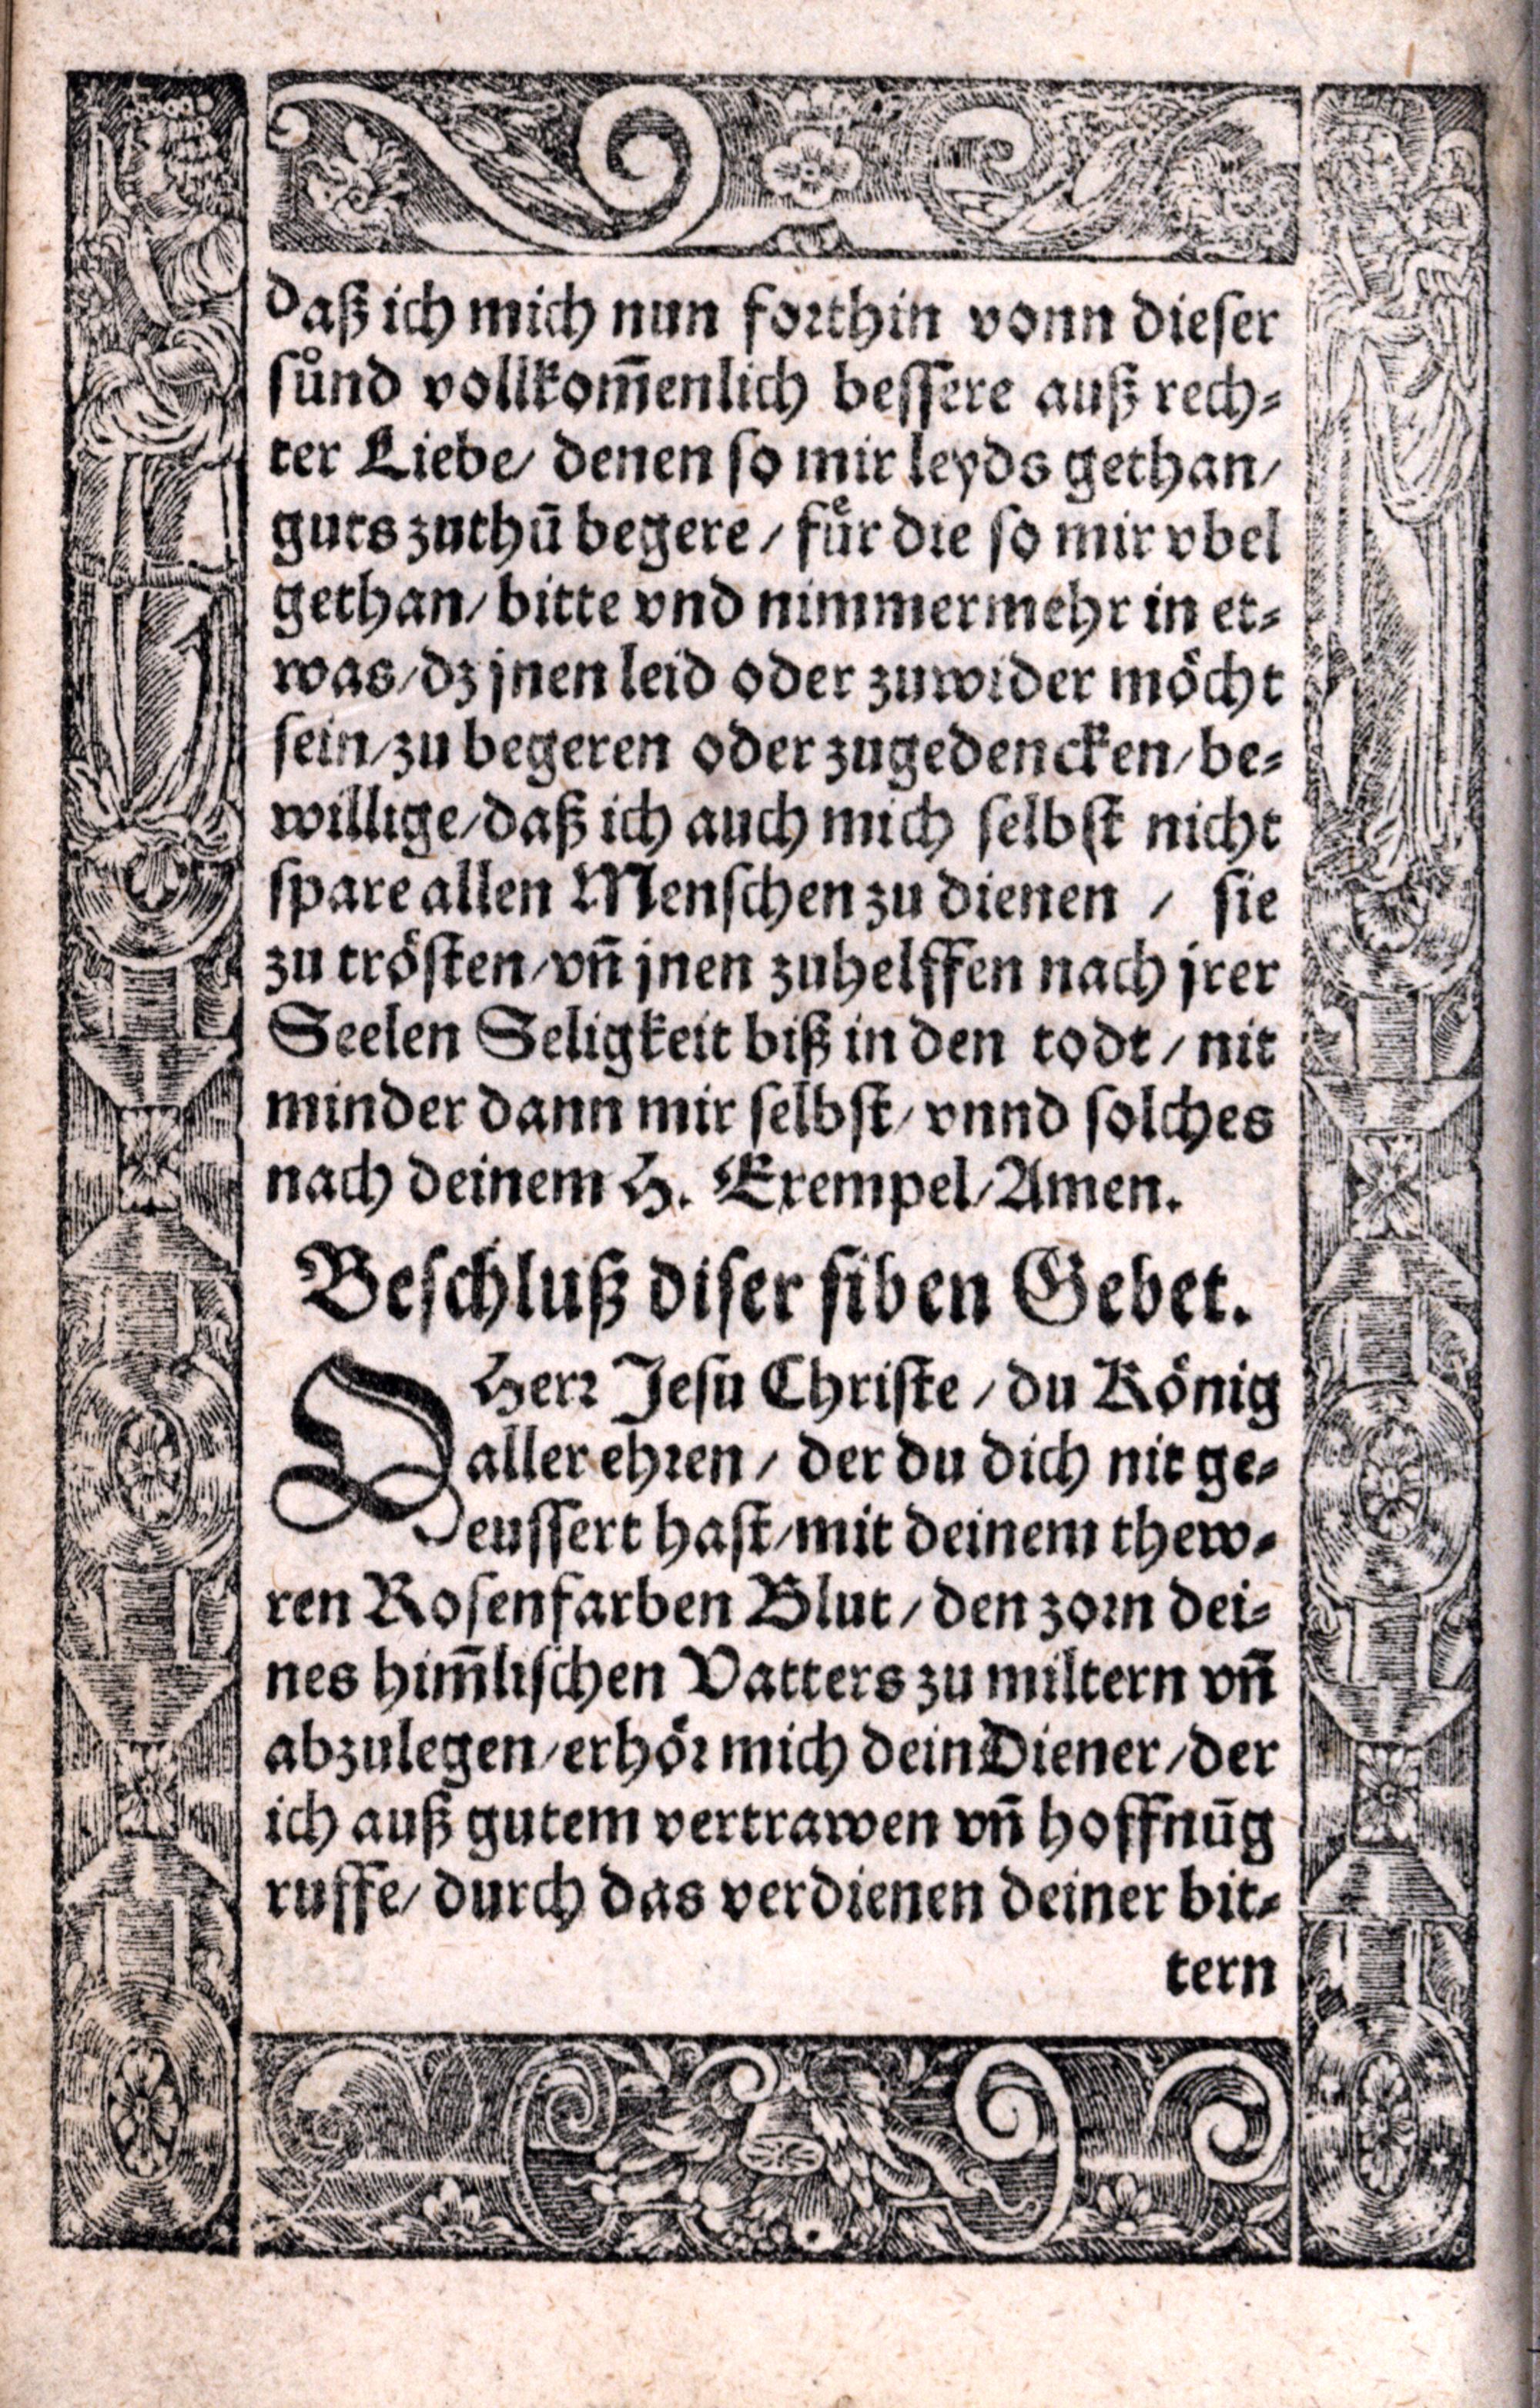 daß ich mich nun forthin vonn dieser
sůnd vollkom̃enlich bessere auß rech⸗
ter Liebe/ denen so mir leyds gethan/
guts zuthũ begere / fůr die so mir vbel
gethan/ bitte vnd nimmermehr in et⸗
was/ dz jnen leid oder zuwider mȯcht
sein/ zu begeren oder zugedencken/ be⸗
willige/ daß ich auch mich selbst nicht
spare allen Menschen zu dienen / sie
zu trȯsten/ vñ jnen zuhelffen nach jrer
Seelen Seligkeit biß in den todt / nit
minder dann mir selbst/ vnnd solches
nach deinem H. Exempel/ Amen.
Beschluß diser siben Gebet.
O Herr Jesu Christe / du Kȯnig
aller ehren / der du dich nit ge⸗
eussert hast/ mit deinem thew⸗
ren Rosenfarben Blut / den zorn dei⸗
nes him̃lischen Vatters zu miltern vñ
abzulegen/ erhȯr mich dein Diener / der
ich auß gutem vertrawen vñ hoffnũg
ruffe/ durch das verdienen deiner bit⸗
tern